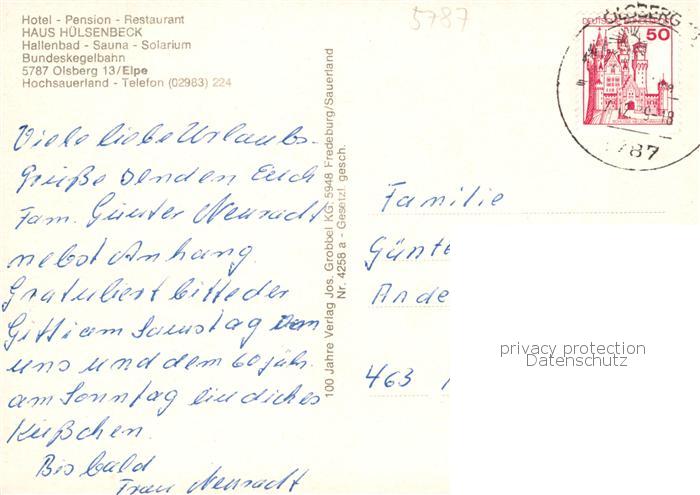 5787
Hotel - Pension - Restaurant
HAUS HÜLSENBECK
Hallenbad - Sauna - Solarium
Bundeskegelbahn
5787 Olsberg 13/Elpe
Hochsauerland - Telefon (02983) 224
Viele liebe Urlaubs-
grüße senden Euch
Fam. Günter Neuradt
nebst Anhang.
Gratuliert bitte der
Gitti am Samstag von
uns und dem 60 jäh.
am Sonntag ein dickes
Küßchen.
Bis bald
Frau Neuradt
100 Jahre Verlag Jos. Grobbel KG; 5948 Fredeburg/Sauerland
Nr. 4258 a - Gesetzl. gesch.
OLSBERG
DEUTSCHE
50
5787
Familie
Günt
Ande
463
privacy protection
Datenschutz